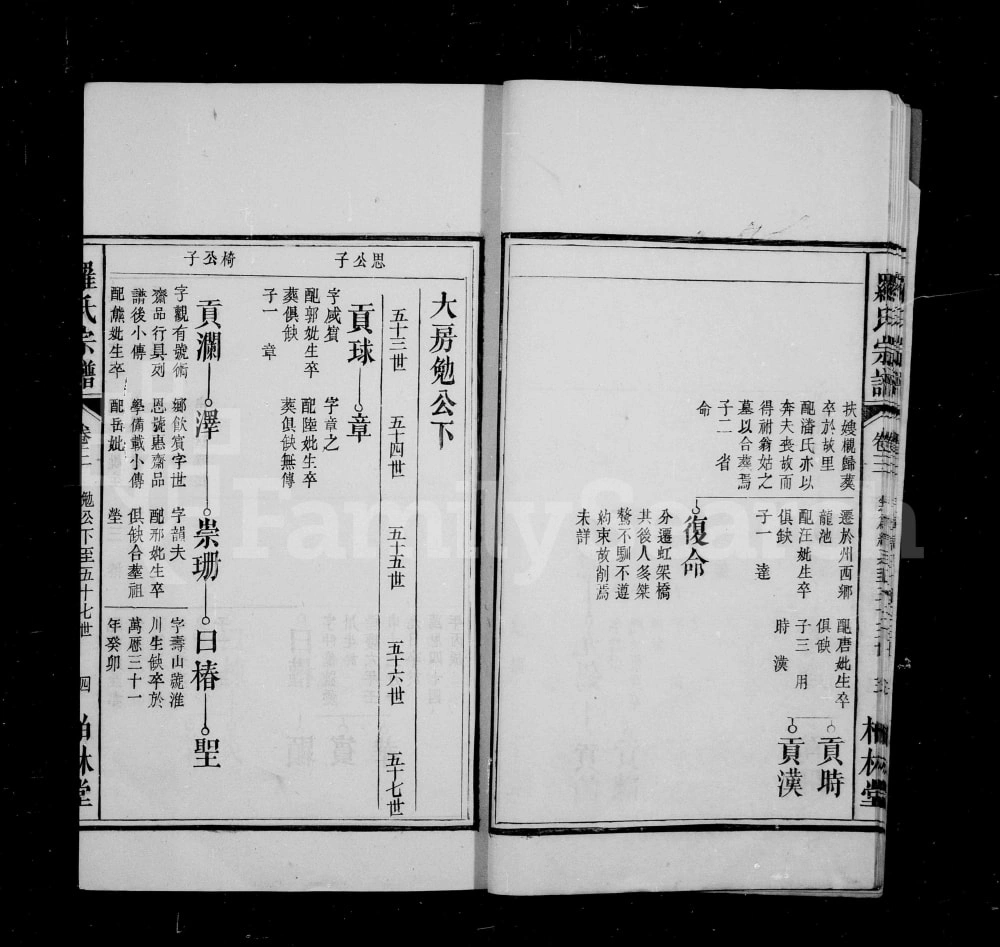 羅氏宗譜
卷三
柏林堂
扶嫂櫬歸葬
卒於故里
配潘氏亦以
奔夫喪故而
得祔翁姑之
墓以合葬焉
子二 省
命
遷於州西鄉
龍池
配汪妣生卒
俱缺
子一 達
配唐妣生卒
俱缺
子三 用
時 漢
貢時
貢漢
復命
分遷虹架橋
其後人多桀
驁不馴不遵
約束故削焉
未詳
大房勉公下
五十三世
五十四世
五十五世
五十六世
五十七世
思公子
貢球
字咸賓
配郭妣生卒
葬俱缺
子一 章
章
字章之
配陸妣生卒
葬俱缺無傳
椅公子
貢瀾
字觀有號術
齋品行具列
譜後小傳
配熊妣生卒
澤
鄉飲賓字世
恩號惠齋品
學備載小傳
配岳妣
崇珊
字韻夫
配邢妣生卒
俱缺合葬祖
塋
日椿
字壽山號淮
川生缺卒於
萬歷三十一
年癸卯
聖
羅氏宗譜
卷三
勉公下至五十七世
四
柏林堂
FamilySearch